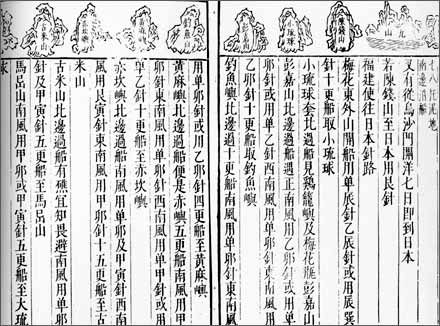 九山
陳錢山
小琉球
又有從烏沙門開洋七日即到日本
若陳錢山至日本用艮針
福建使往日本針路
梅花東外山開船用單辰針乙辰針或用辰巽
針十更船取小琉球
小琉球套北過船見雞籠嶼及梅花瓶彭嘉山
彭嘉山北邊過船遇正南風用乙卯針或用單
卯針或用單乙針西南風用單卯針東南風用
乙卯針十更船取釣魚嶼
釣魚嶼北邊過十更船南風用單卯針東南風
釣魚嶼
用單卯針或用乙卯針四更船至黃麻嶼
黃麻嶼北邊過船便是赤嶼五更船南風用甲
卯針東南風用單卯針西南風用單甲針或用
單乙針十更船至赤坎嶼
赤坎嶼北邊過船南風用單卯及甲寅針西南
風用艮寅針東南風用甲卯針十五更船至古
米山
古米山北邊過船有礁宜知畏避南風用單卯
針及甲寅針五更船至馬岊山
馬岊山南風用甲卯或甲寅針五更船至大琉
球